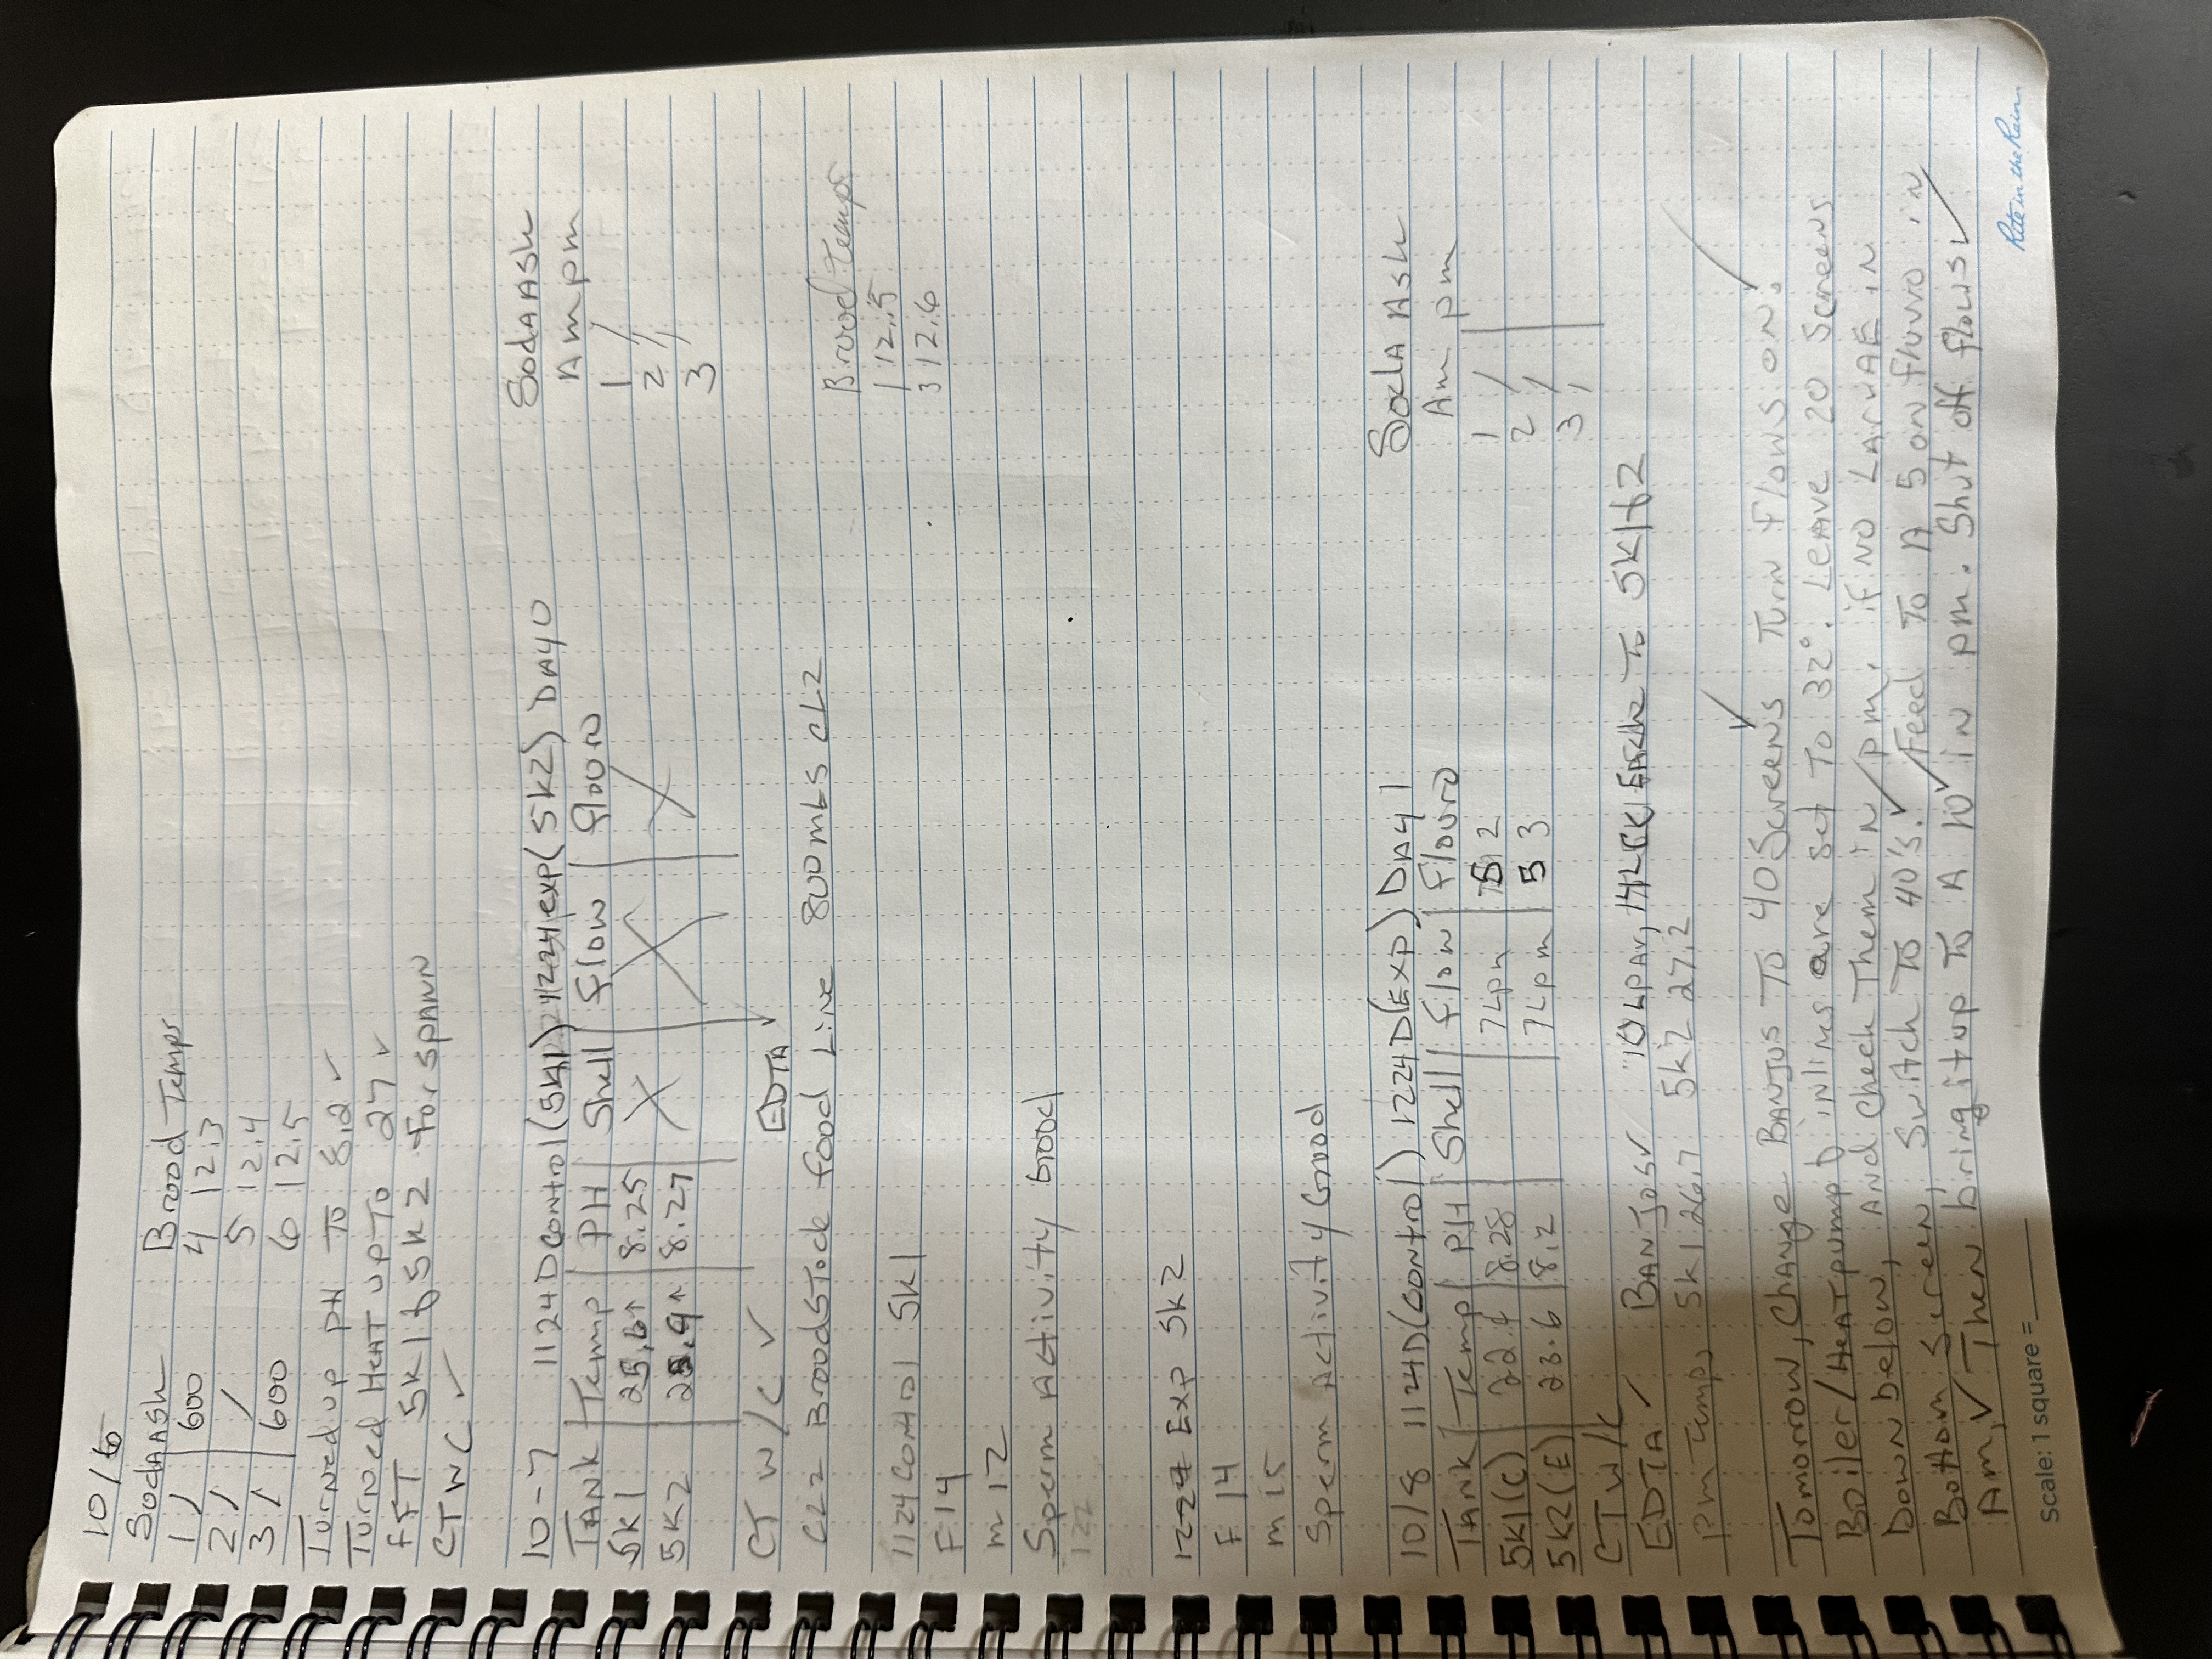 10/6
Soda Ash Brood Temps
1 / 600 4 12.3
2 / / 5 12.4
3 / 600 6 12.5
Turned up pH To 8.2 ✓
Turned HEAT UP TO 27 ✓
FFT 5K1 & 5K2 For SPAWN
CTWC ✓
10-7 1124D Control (5K1) 1224 exp (5K2) DAY 0 Soda Ash
TANK Temp PH Shell Flow flouro Am pm
5K1 25.6↑ 8.25 X X X 1 /
5K2 25.9↑ 8.27 2 /
3
CT W/C ✓ EDTA ✓
CL2 BroodStock food Line 800 mLs CL2
Brood Temps
1124 Control 5K1 1 12.5
F 14 3 12.6
m 12
Sperm Activity Good
122
1224 Exp 5K2
F 14
m 15
Sperm Activity Good
10/8 1124D (Control) 1224D (Exp) DAY 1 Soda Ash
TANK Temp PH Shell flow flouro Am pm
5K1 (C) 22.4 8.28 7Lpm 5 2 1 /
5K2 (E) 23.6 8.2 7Lpm 5 3 2 /
3 /
CT W/C
EDTA ✓ BANJOS ✓ 10 L PAV, 14L EACH To 5K1 & 2
pm Temps 5K1 26.7 5K2 27.2
Tomorrow, Change BANJOS To 40 Screens ✓ Turn Flows on. ✓
Boiler/HEAT pump & inlines are set To 32°. Leave 20 Screens
Down below, And Check Them in pm. if NO LARVAE in
Bottom Screen, Switch To 40's. ✓ Feed To A 5 on flouro in
Am, ✓ Then bring it up To A 10 ✓ in pm. Shut off flows ✓
Scale: 1 square =
Rite in the Rain